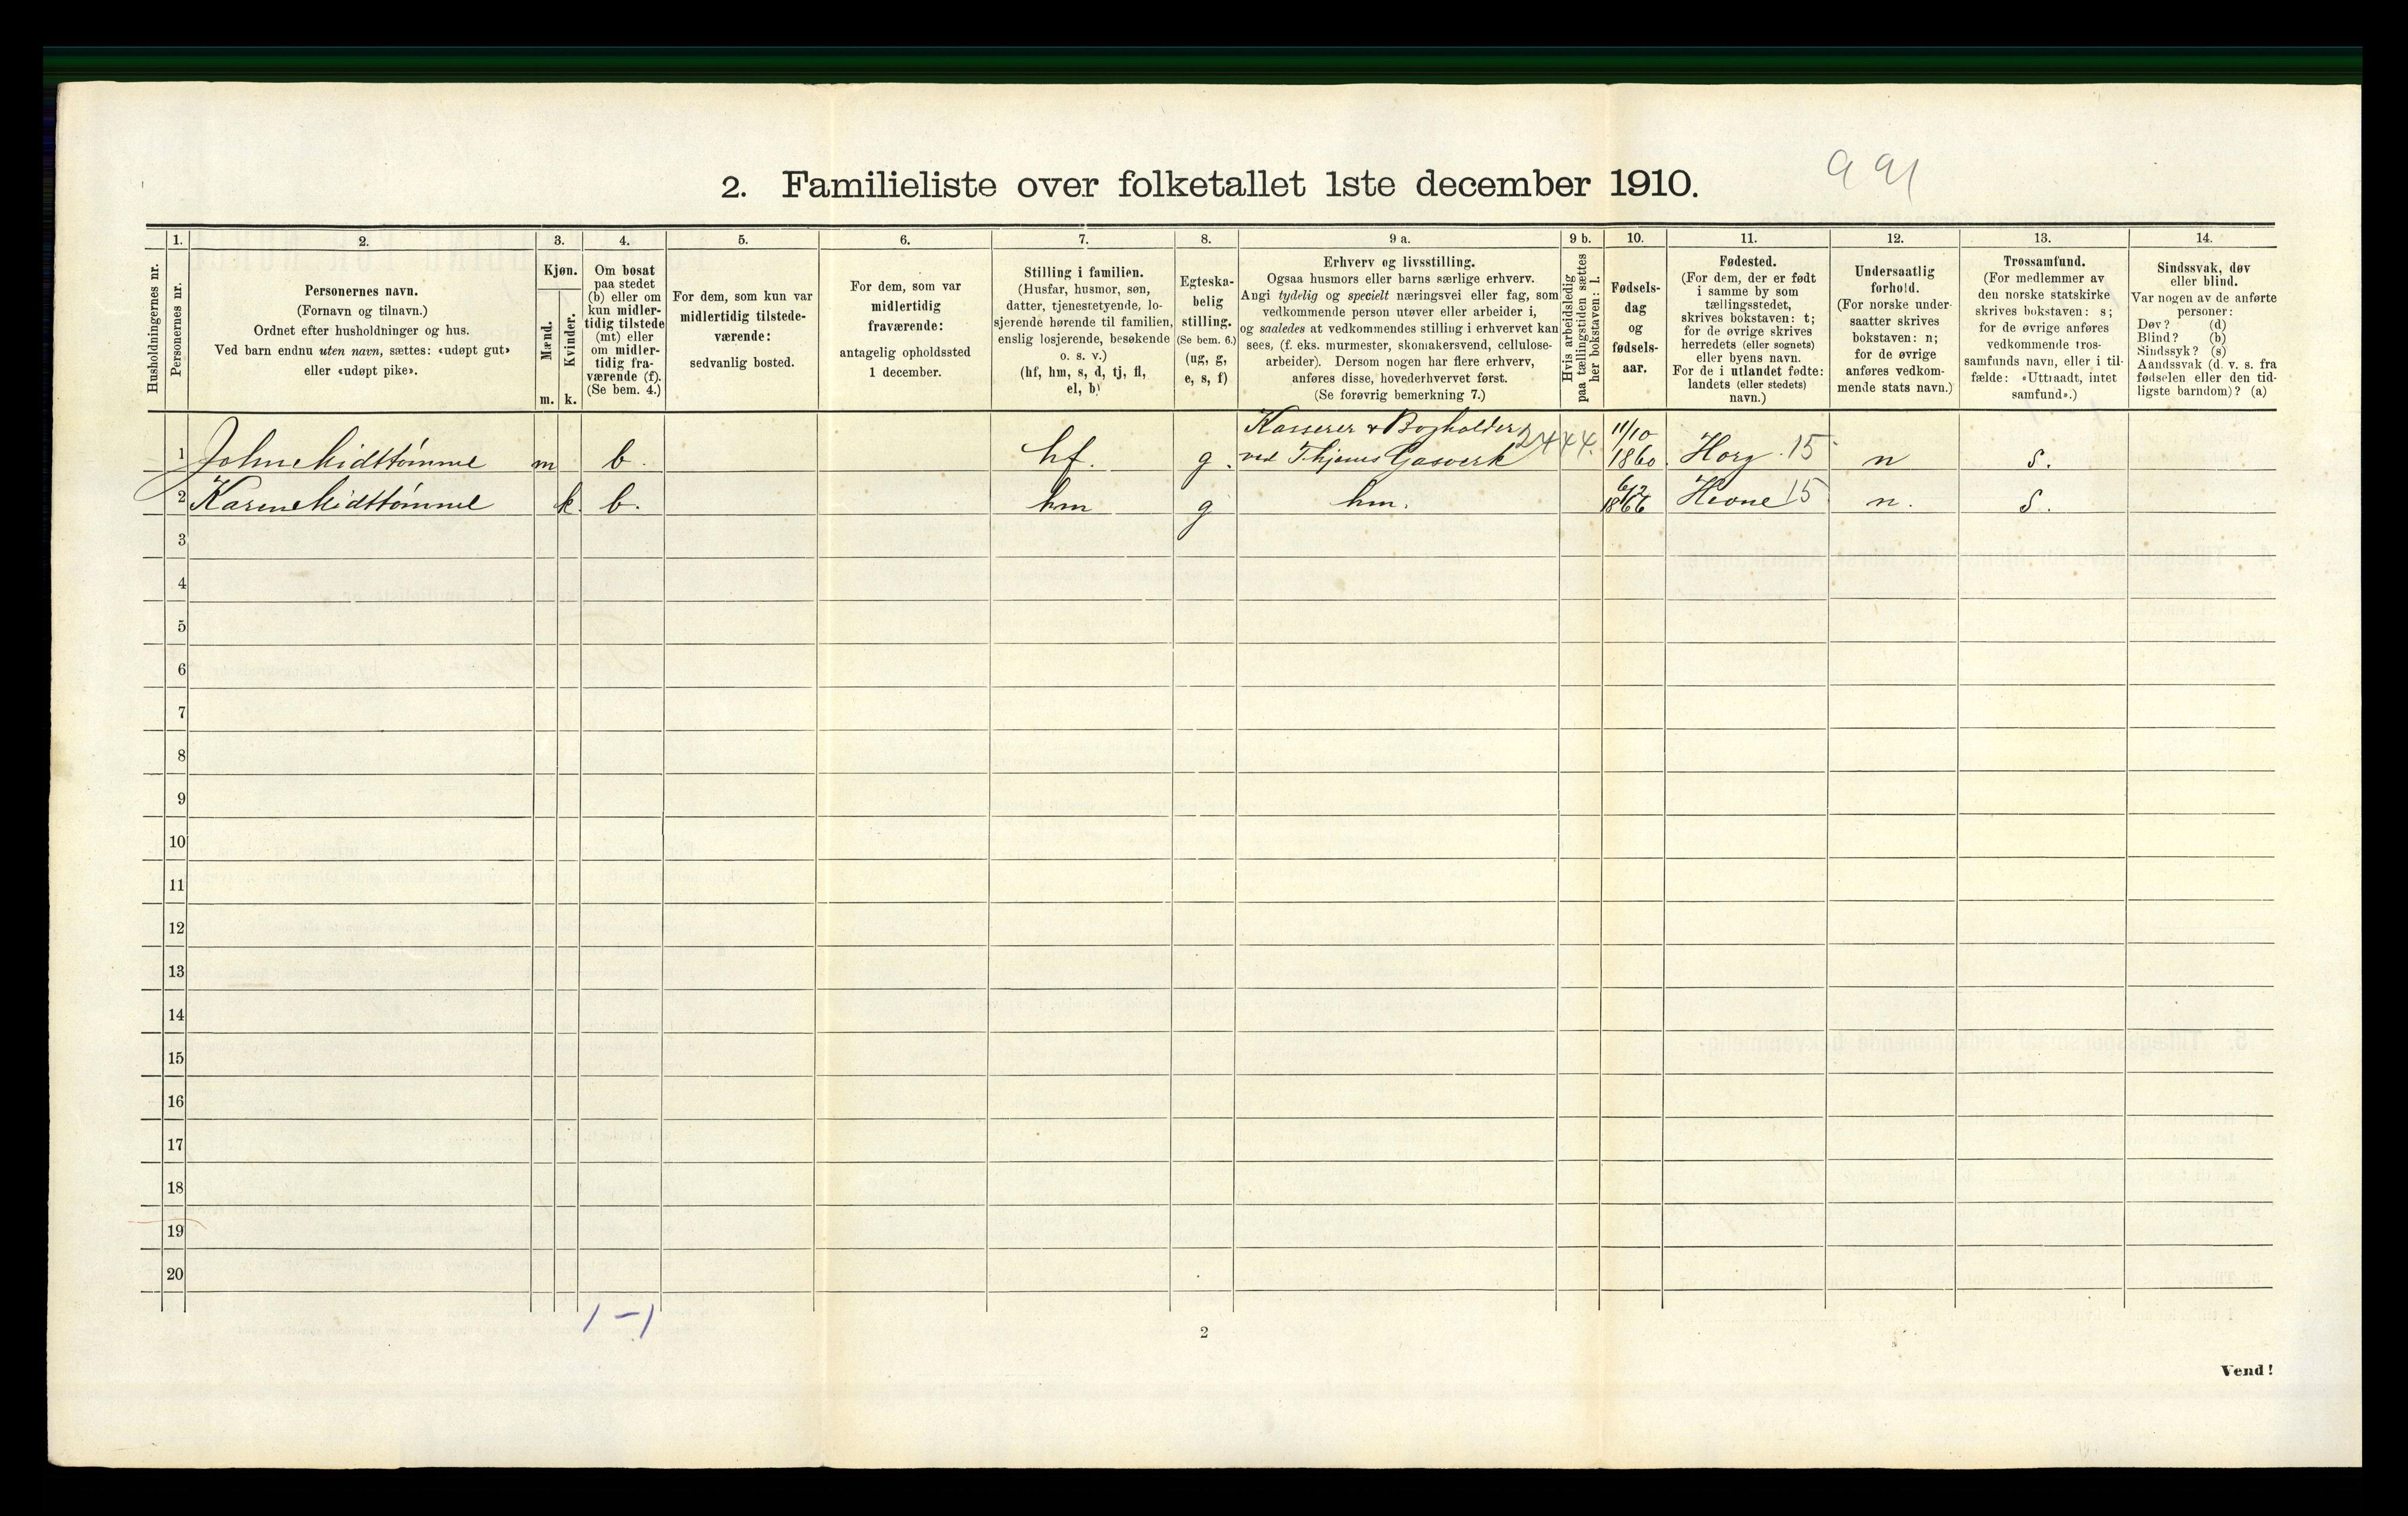 2. Familieliste over folketallet 1ste december 1910.
Husholdningernes nr.
1.
Personernes nr.
2.
Personernes navn.
(Fornavn og tilnavn.)
Ordnet efter husholdninger og hus.
Ved barn endnu uten navn, sættes: «udøpt gut»
eller «udøpt pike».
3.
Kjøn.
Mænd.
Kvinder.
m. k.
4.
Om bosat
paa stedet
(b) eller om
kun midler-
tidig tilstede
(mt) eller
om midler-
tidig fra-
værende (f).
(Se bem. 4.)
5.
For dem, som kun var
midlertidig tilstede-
værende:
sedvanlig bosted.
6.
For dem, som var
midlertidig
fraværende:
antagelig opholdssted
1 december.
7.
Stilling i familien.
(Husfar, husmor, søn,
datter, tjenestetyende, lo-
sjerende hørende til familien,
enslig losjerende, besøkende
o. s. v.)
(hf, hm, s, d, tj, fl,
el, b)
8.
Egteska-
belig
stilling.
(Se bem. 6.)
(ug, g,
e, s, f)
9 a.
Erhverv og livsstilling.
Ogsaa husmors eller barns særlige erhverv.
Angi tydelig og specielt næringsvei eller fag, som
vedkommende person utøver eller arbeider i,
og saaledes at vedkommendes stilling i erhvervet kan
sees, (f. eks. murmester, skomakersvend, cellulose-
arbeider). Dersom nogen har flere erhverv,
anføres disse, hovederhvervet først.
(Se forøvrig bemerkning 7.)
9 b.
Hvis arbeidsledig
paa tællingstiden sættes
her bokstaven: l.
10.
Fødsels-
dag
og
fødsels-
aar.
11.
Fødested.
(For dem, der er født
i samme by som
tællingsstedet,
skrives bokstaven: t;
for de øvrige skrives
herredets (eller sognets)
eller byens navn.
For de i utlandet fødte:
landets (eller stedets)
navn.)
12.
Undersaatlig
forhold.
(For norske under-
saatter skrives
bokstaven: n;
for de øvrige
anføres vedkom-
mende stats navn.)
13.
Trossamfund.
(For medlemmer av
den norske statskirke
skrives bokstaven: s;
for de øvrige anføres
vedkommende tros-
samfunds navn, eller i til-
fælde: «Uttraadt, intet
samfund».)
14.
Sindssvak, døv
eller blind.
Var nogen av de anførte
personer:
Døv? (d)
Blind? (b)
Sindssyk? (s)
Aandssvak (d. v. s. fra
fødselen eller den tid-
ligste barndom)? (a)
1 John Midttømmel m b. hf. g. Kasserer & Bogholder 2444. 11/10
ved Thjems Gasverk 1860. Horg 15 n s.
2 Karen Midttømmel k. b. hm g hm. 6/12
1866 Hevne 15 n. s.
3
4
5
6
7
8
9
10
11
12
13
14
15
16
17
18
19
20
1-1
2
Vend!